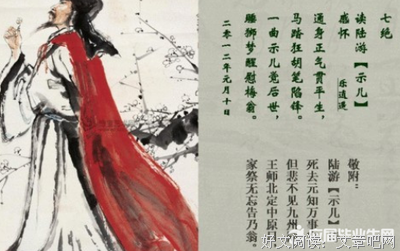 七绝
读陆游【示儿】
感怀
乐逍遥
通身正气贯平生，
马踏狂胡笔陷锋。
一曲示儿觉后世，
腰狮梦醒慰梅翁。
二零一二年元月十日
敬附：
陆游【示儿】
死去元知万事
但悲不见九州
王师北定中原
家祭无忘告乃翁。
应届毕业生网
好文阅读：文章吧网